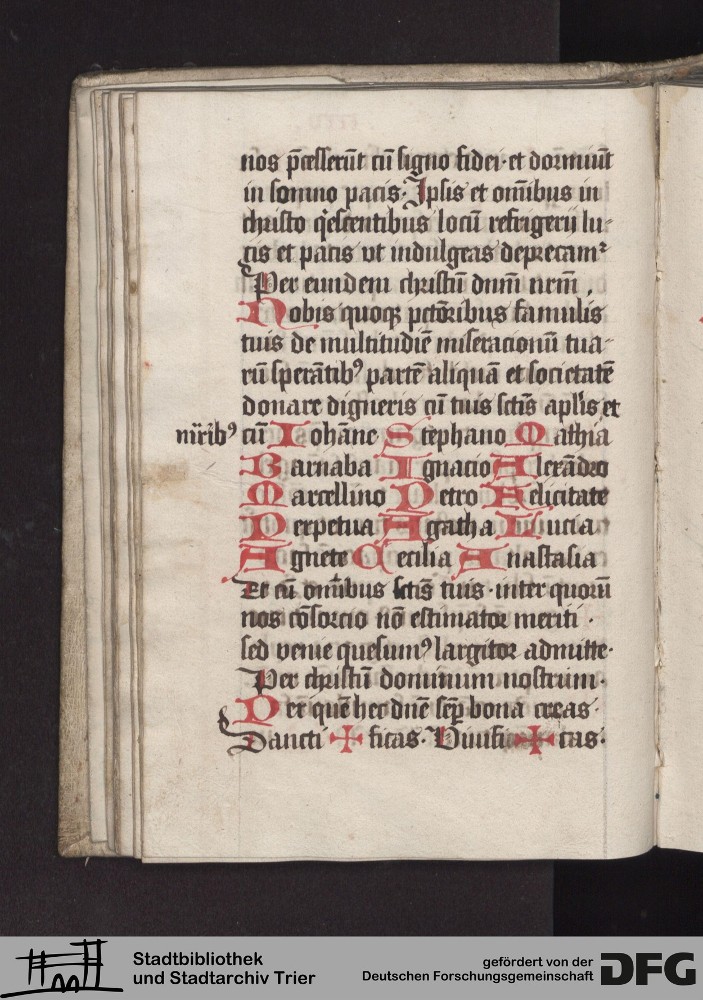 nos p̄cesserūt cū signo fidei · et dormiūt
in somno pacis · Ipsis et om̄ibus in
christo q̇escentibus locū refrigerij lu-
cis et pacis vt indulgeas deprecamᷣ
Per eundem christū dnm̄ nrm̄ .
Nobis quoqꝫ pctōribus famulis
tuis de multitudīe miseracionū tua-
rū sperātibꝰ partē aliquā et societatē
donare digneris cū tuis sctīs aplīs et
mr̄ibꝰ cū Iohāne Stephano Mathia
Barnaba Ignacio Alexādro
Marcellino Petro Felicitate
Perpetua Agatha Lucia
Agnete Cecilia Anastasia
Et cū om̄ibus sctīs tuis · inter quorū
nos cōsorcio nō estimator meriti ·
sed venie quesumꝰ largitor admitte ·
Per christū dominum nostrum ·
Per quē hec dn̄e sēp bona creas ·
Sancti ✠ ficas · Viuifi ✠ cas ·
Stadtbibliothek
und Stadtarchiv Trier
gefördert von der
Deutschen Forschungsgemeinschaft
DFG